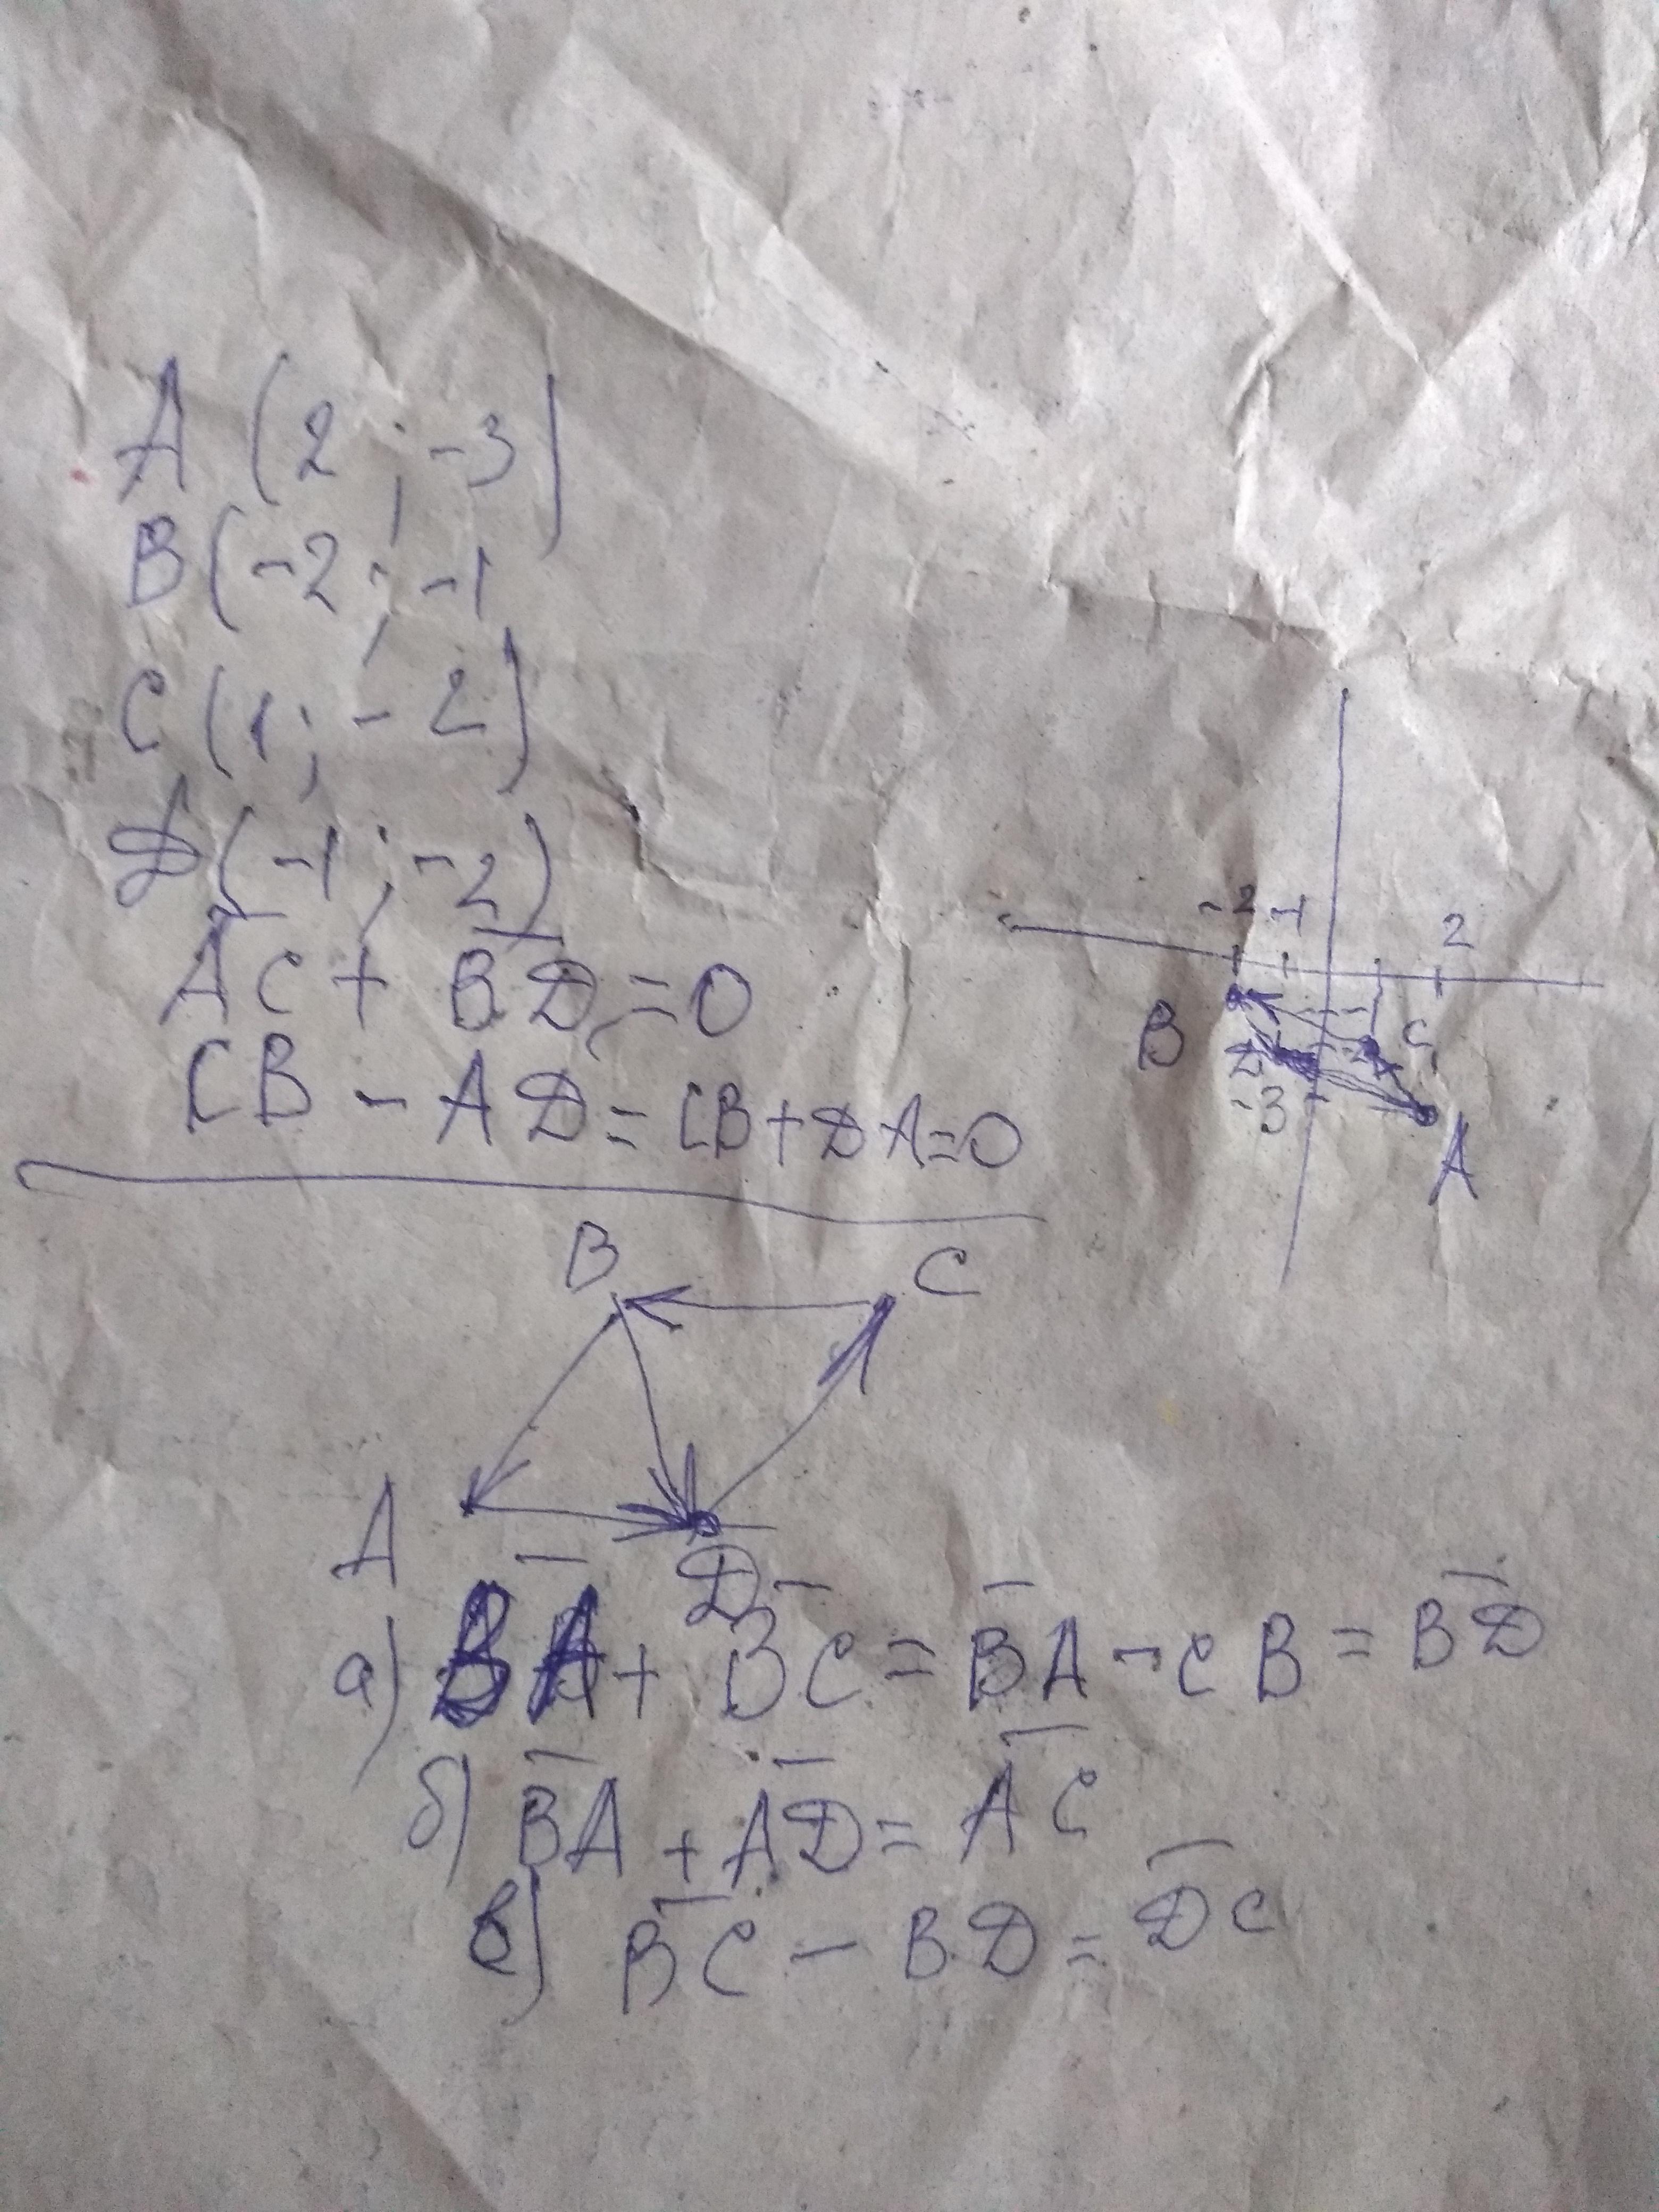 A (2 ; -3)
B (-2 ; -1
C (1 ; -2)
D (-1 ; -2)
AC + BD = 0
CB - AD = CB + DA = 0
-2 -1
2
B
-1
-2
C
2
-3
A
B
C
A
D
a) BA + BC = BA - CB = BD
б) BA + AD = AC
в) BC - BD = DC